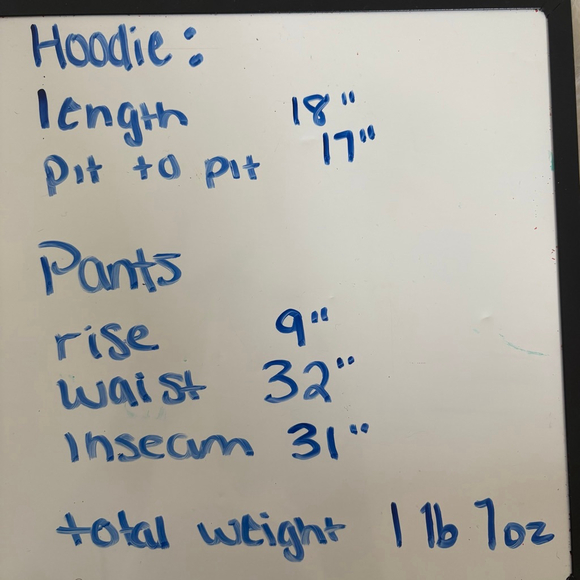 Hoodie:
length 18"
pit to pit 17"
Pants
rise 9"
waist 32"
inseam 31"
total weight 1 lb 7oz